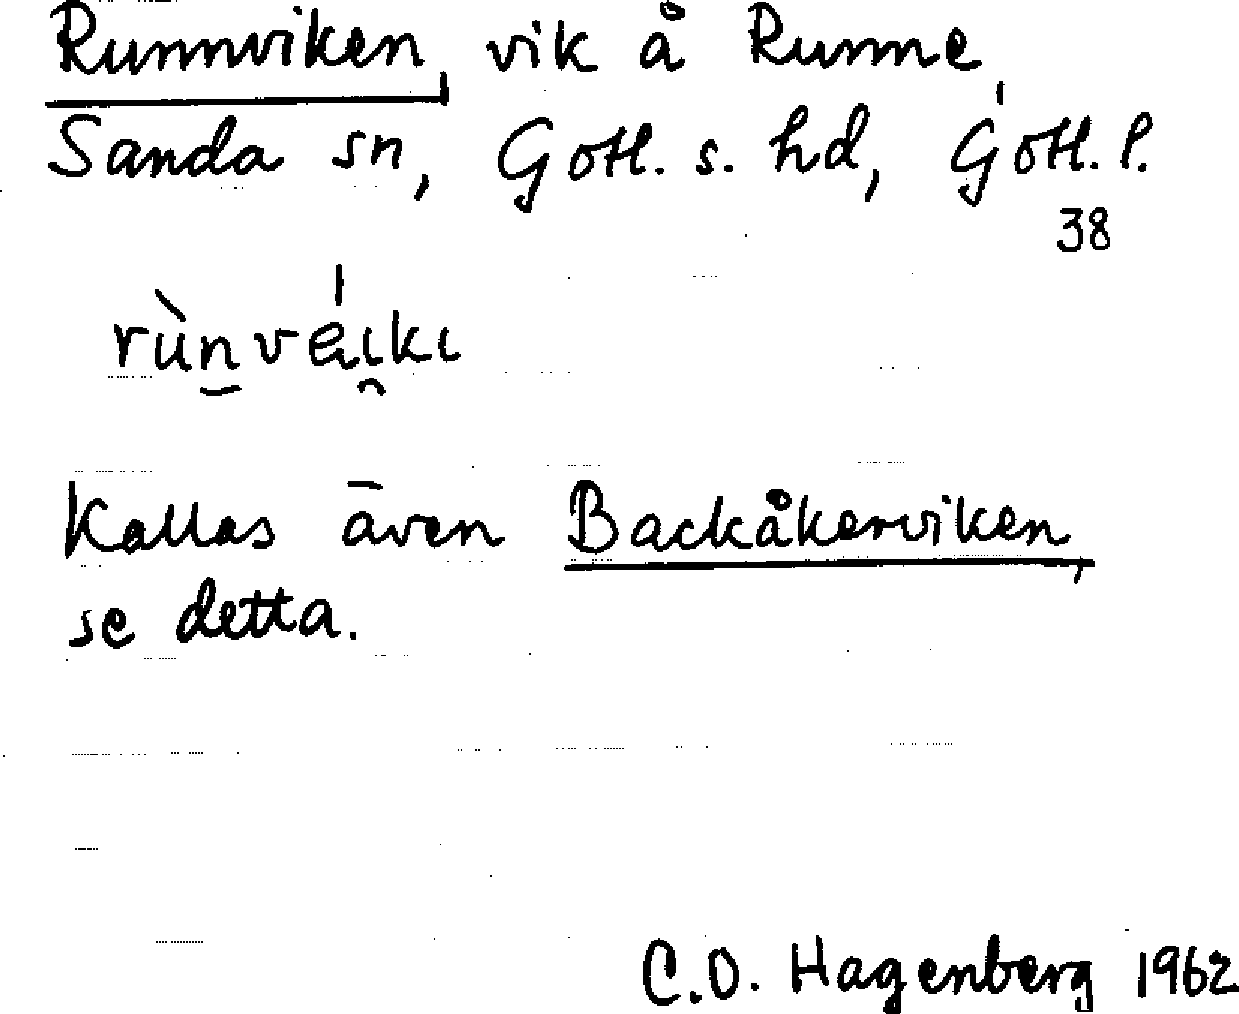 Runnviken, vik å Runne,
Sanda sn, Gotl. s. hd, Gotl. l.
38
rùn̠véi̯kɩ
Kallas även Backåkerviken,
se detta.
C.O. Hagenberg 1962